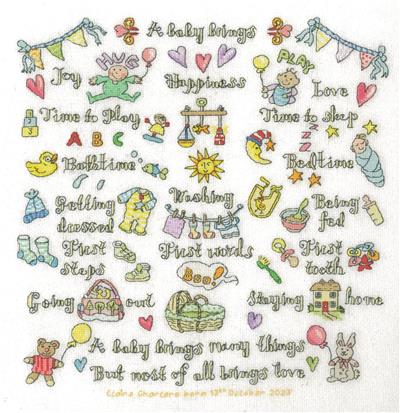 A baby brings
HUG
PLAY
Joy
Happiness
Love
Time to play
Time to sleep
A B C
Z Z Z
Bathtime
Bedtime
Getting dressed
Washing
Being fed
First steps
First words
First tooth
Boo!
Going out
Staying home
A baby brings many things
But most of all brings love
born October 2023